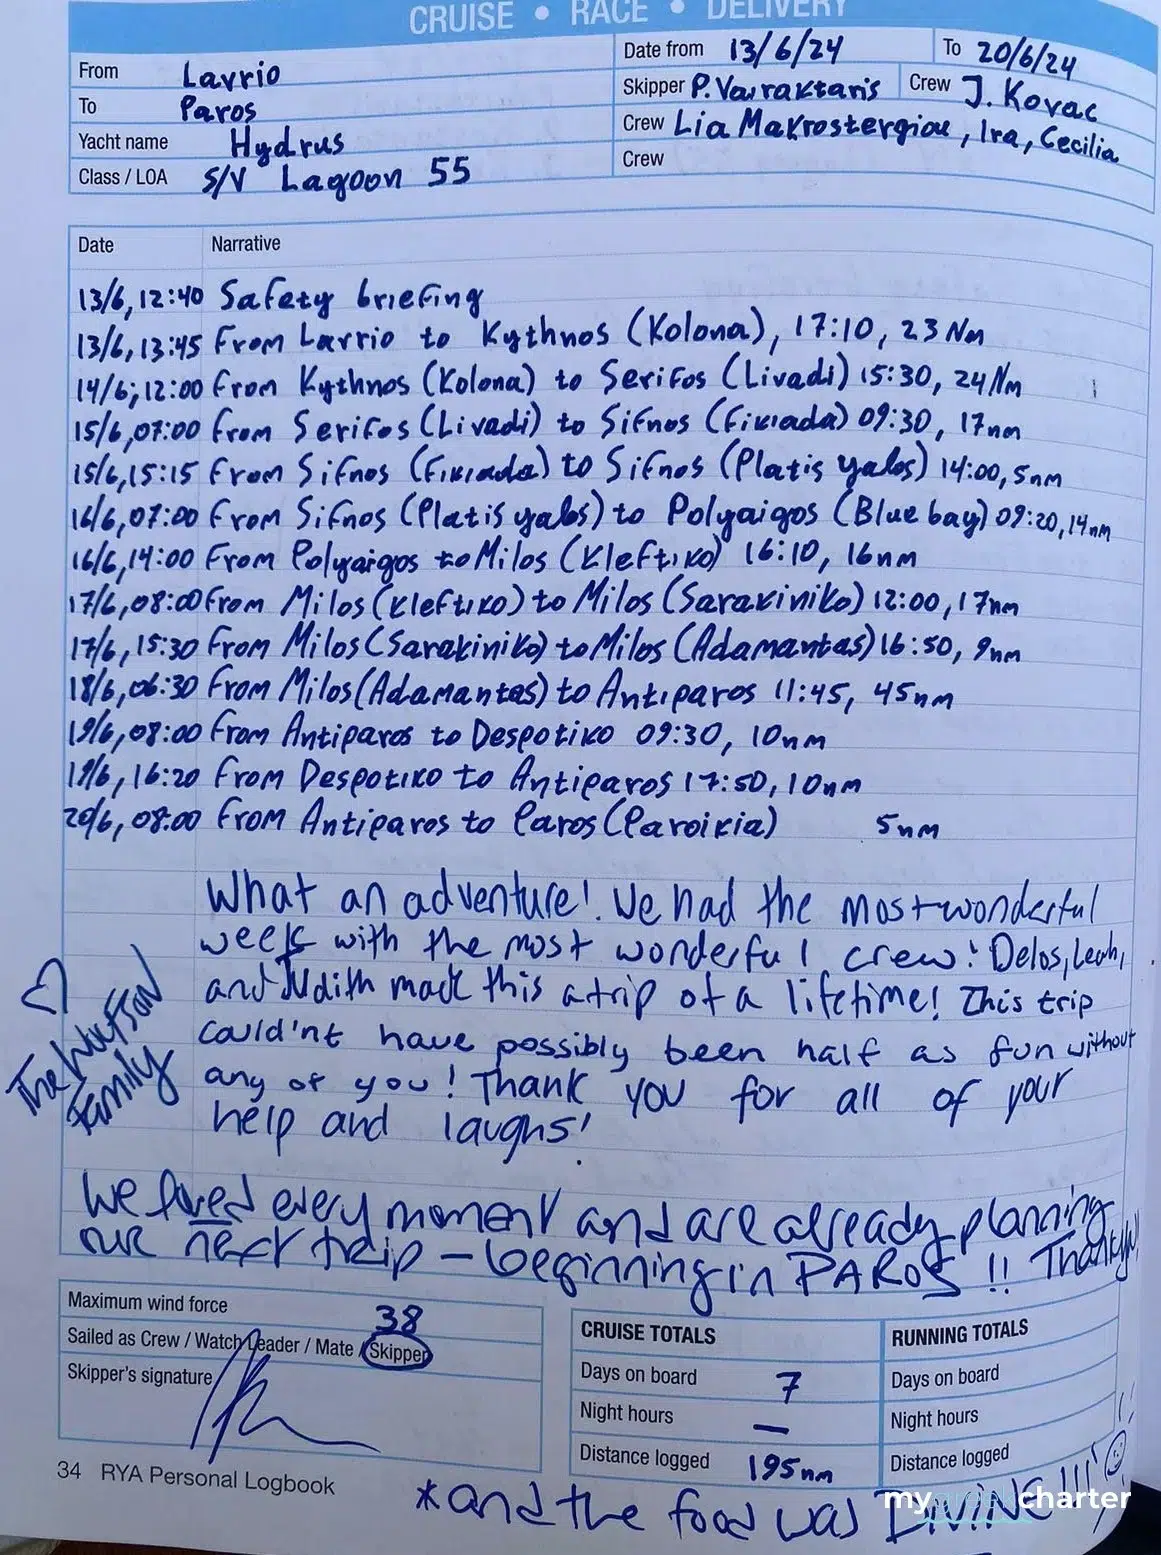 CRUISE • RACE • DELIVERY
From Lavrio
Date from 13/6/24 To 20/6/24
To Paros
Skipper P. Varaktaris Crew J. Kovac
Yacht name Hydrus
Crew Lia Makrostergiou, Ira, Cecilia
Class / LOA S/V Lagoon 55
Crew
Date Narrative
13/6, 12:40 Safety briefing
13/6, 13:45 From Lavrio to Kythnos (Kolona), 17:10, 23 Nm
14/6; 12:00 From Kythnos (Kolona) to Serifos (Livadi) 15:30, 24 Nm
15/6, 07:00 From Serifos (Livadi) to Sifnos (Fikiada) 09:30, 17nm
15/6, 15:15 From Sifnos (Fikiada) to Sifnos (Platis yalos) 14:00, 5nm
16/6, 07:00 From Sifnos (Platis yalos) to Polyaigos (Blue bay) 09:20, 14nm
16/6, 14:00 From Polyaigos to Milos (Kleftiko) 16:10, 16nm
17/6, 08:00 From Milos (Kleftiko) to Milos (Sarakiniko) 12:00, 17nm
17/6, 15:30 From Milos (Sarakiniko) to Milos (Adamantas) 16:50, 9nm
18/6, 06:30 From Milos (Adamantas) to Antiparos 11:45, 45nm
19/6, 08:00 From Antiparos to Despotiko 09:30, 10nm
19/6, 16:20 From Despotiko to Antiparos 17:50, 10nm
20/6, 08:00 From Antiparos to Paros (Paroikia) 5nm
What an adventure! We had the most wonderful
week with the most wonderful crew! Delos, Leah,
and Judith made this a trip of a lifetime! This trip
could'nt have possibly been half as fun without
any of you! Thank you for all of your
help and laughs!
The Watson
Family
We loved every moment and are already planning
our next trip – beginning in PAROS !! Thank you!!
Maximum wind force 38
Sailed as Crew / Watch Leader / Mate / Skipper
Skipper's signature
CRUISE TOTALS
Days on board 7
Night hours —
Distance logged 195nm
RUNNING TOTALS
Days on board
Night hours
Distance logged
34 RYA Personal Logbook
*and the food was DIVINE!!!
mygreekcharter